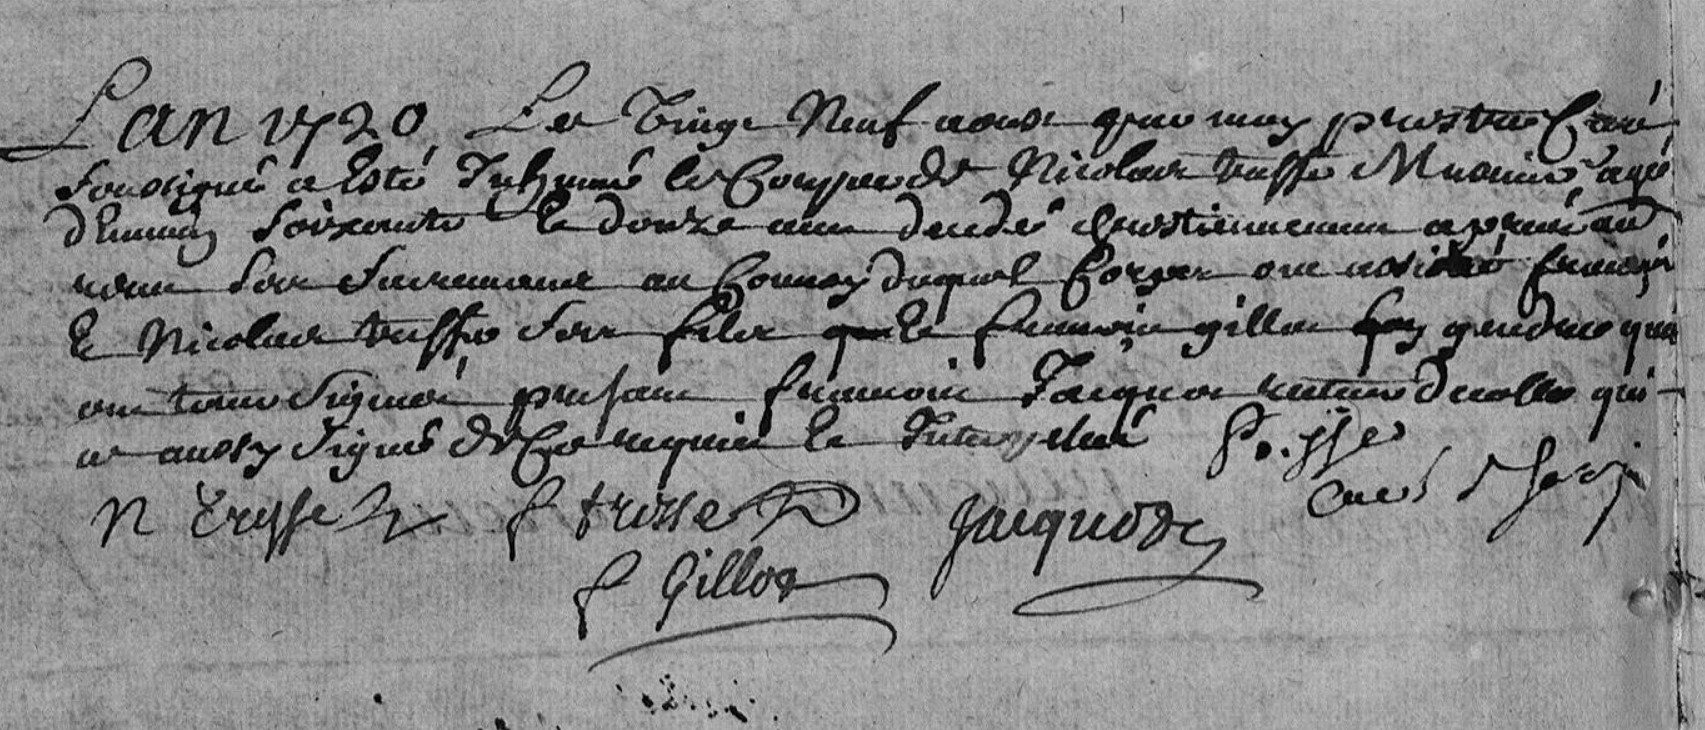 Lan 1720 Le Vingt Neuf aoust par moy prestre Curé
soussigné a Esté Inhumé le Corps de Nicolas trusse Munier agé
denviron soixante et douze ans decedé chrestiennement apres avoir
receu ses sacremens au Convoy duquel Corps ont assisté francois
et Nicolas trusse ses fils et francois gillot gendre qui
ont tous signés present francois Jacquot recteur decolle qui
at aussy signé de Ce requis et Interpellé
N trusse f trusse Jacquot
f Gillot